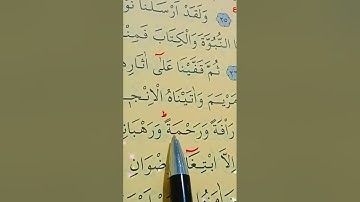 ٢٥ وَلَقَدْ اَرْسَلْنَا نُو
ا النُّبُوَّةَ وَالْكِتَابَ فَمِنْهُ
ثُمَّ قَفَّيْنَا عَلٰٓى اٰثَارِهِ
مَرْيَمَ وَاٰتَيْنَاهُ الْاِنْجٖ
رَأْفَةً وَرَحْمَةً وَرَهْبَانِ
اِلَّا ابْتِغَٓاءَ رِضْوَانِ